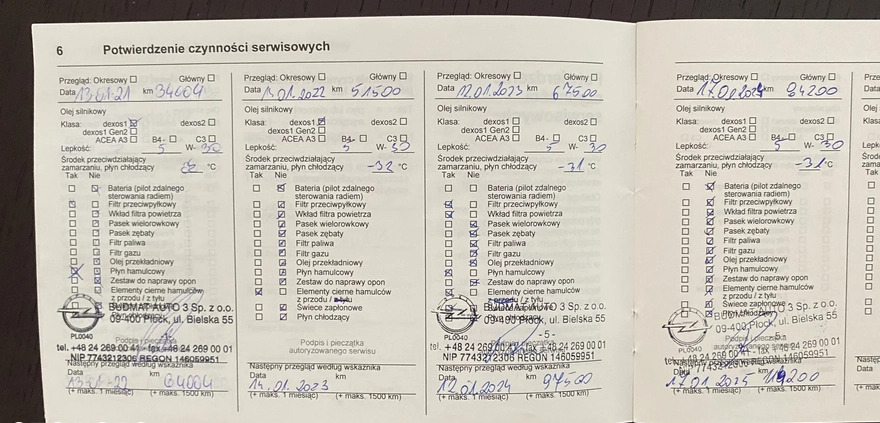 6 Potwierdzenie czynności serwisowych
Przegląd: Okresowy Główny
Data 13.01.21 km 34004
Olej silnikowy
Klasa: dexos1 dexos2
dexos1 Gen2
ACEA A3 B4- C3
Lepkość: 5 W- 30
Środek przeciwdziałający
zamarzaniu, płyn chłodzący °C
Tak Nie
Bateria (pilot zdalnego
sterowania radiem)
Filtr przeciwpyłkowy
Wkład filtra powietrza
Pasek wielorowkowy
Pasek zębaty
Filtr paliwa
Filtr gazu
Olej przekładniowy
Płyn hamulcowy
Zestaw do naprawy opon
Elementy cierne hamulców
z przodu / z tyłu
BUDMAT AUTO 3 Sp. z o.o.
09-400 Płock, ul. Bielska 55
PL0040
Podpis i pieczątka
tel. +48 24 269 00 41 - fax +48 24 269 00 01
NIP 7743212306 REGON 146059951
Następny przegląd według wskaźnika
Data km
13-01-22 64004
(+ maks. 1 miesiąc) (+ maks. 1500 km)
Przegląd: Okresowy Główny
Data 01.2022 km 51500
Olej silnikowy
Klasa: dexos1 dexos2
dexos1 Gen2
ACEA A3 B4- C3
Lepkość: 5 W- 30
Środek przeciwdziałający
zamarzaniu, płyn chłodzący -32 °C
Tak Nie
Bateria (pilot zdalnego
sterowania radiem)
Filtr przeciwpyłkowy
Wkład filtra powietrza
Pasek wielorowkowy
Pasek zębaty
Filtr paliwa
Filtr gazu
Olej przekładniowy
Płyn hamulcowy
Zestaw do naprawy opon
Elementy cierne hamulców
z przodu / z tyłu
Świece zapłonowe
Płyn chłodzący
Podpis i pieczątka
autoryzowanego serwisu
Następny przegląd według wskaźnika
Data km
14.01.2023
(+ maks. 1 miesiąc) (+ maks. 1500 km)
Przegląd: Okresowy Główny
Data 12.01.2023 km 67500
Olej silnikowy
Klasa: dexos1 dexos2
dexos1 Gen2
ACEA A3 B4- C3
Lepkość: 5 W- 30
Środek przeciwdziałający
zamarzaniu, płyn chłodzący -31 °C
Tak Nie
Bateria (pilot zdalnego
sterowania radiem)
Filtr przeciwpyłkowy
Wkład filtra powietrza
Pasek wielorowkowy
Pasek zębaty
Filtr paliwa
Filtr gazu
Olej przekładniowy
Płyn hamulcowy
Zestaw do naprawy opon
Elementy cierne hamulców
z przodu / z tyłu
BUDMAT AUTO 3 Sp. z o.o.
09-400 Płock, ul. Bielska 55
- 5 -
PL0040
tel. +48 24 269 00 41 - fax +48 24 269 00 01
NIP 7743212306 REGON 146059951
Następny przegląd według wskaźnika
Data km
12.01.2024 97500
(+ maks. 1 miesiąc) (+ maks. 1500 km)
Przegląd: Okresowy Główny
Data km 84200
Olej silnikowy
Klasa: dexos1 dexos2
dexos1 Gen2
ACEA A3 B4- C3
Lepkość: 5 W- 30
Środek przeciwdziałający
zamarzaniu, płyn chłodzący -31 °C
Tak Nie
Bateria (pilot zdalnego
sterowania radiem)
Filtr przeciwpyłkowy
Wkład filtra powietrza
Pasek wielorowkowy
Pasek zębaty
Filtr paliwa
Filtr gazu
Olej przekładniowy
Płyn hamulcowy
Zestaw do naprawy opon
Elementy cierne hamulców
z przodu / z tyłu
Świece zapłonowe
BUDMAT AUTO 3 Sp. z o.o.
09-400 Płock, ul. Bielska 55
- 5 -
PL0040
tel. +48 24 269 00 41 - fax +48 24 269 00 01
7743212306 REGON 146059951
Następny przegląd według wskaźnika
Data km
17.01.2025
(+ maks. 1 miesiąc) (+ maks. 1500 km)